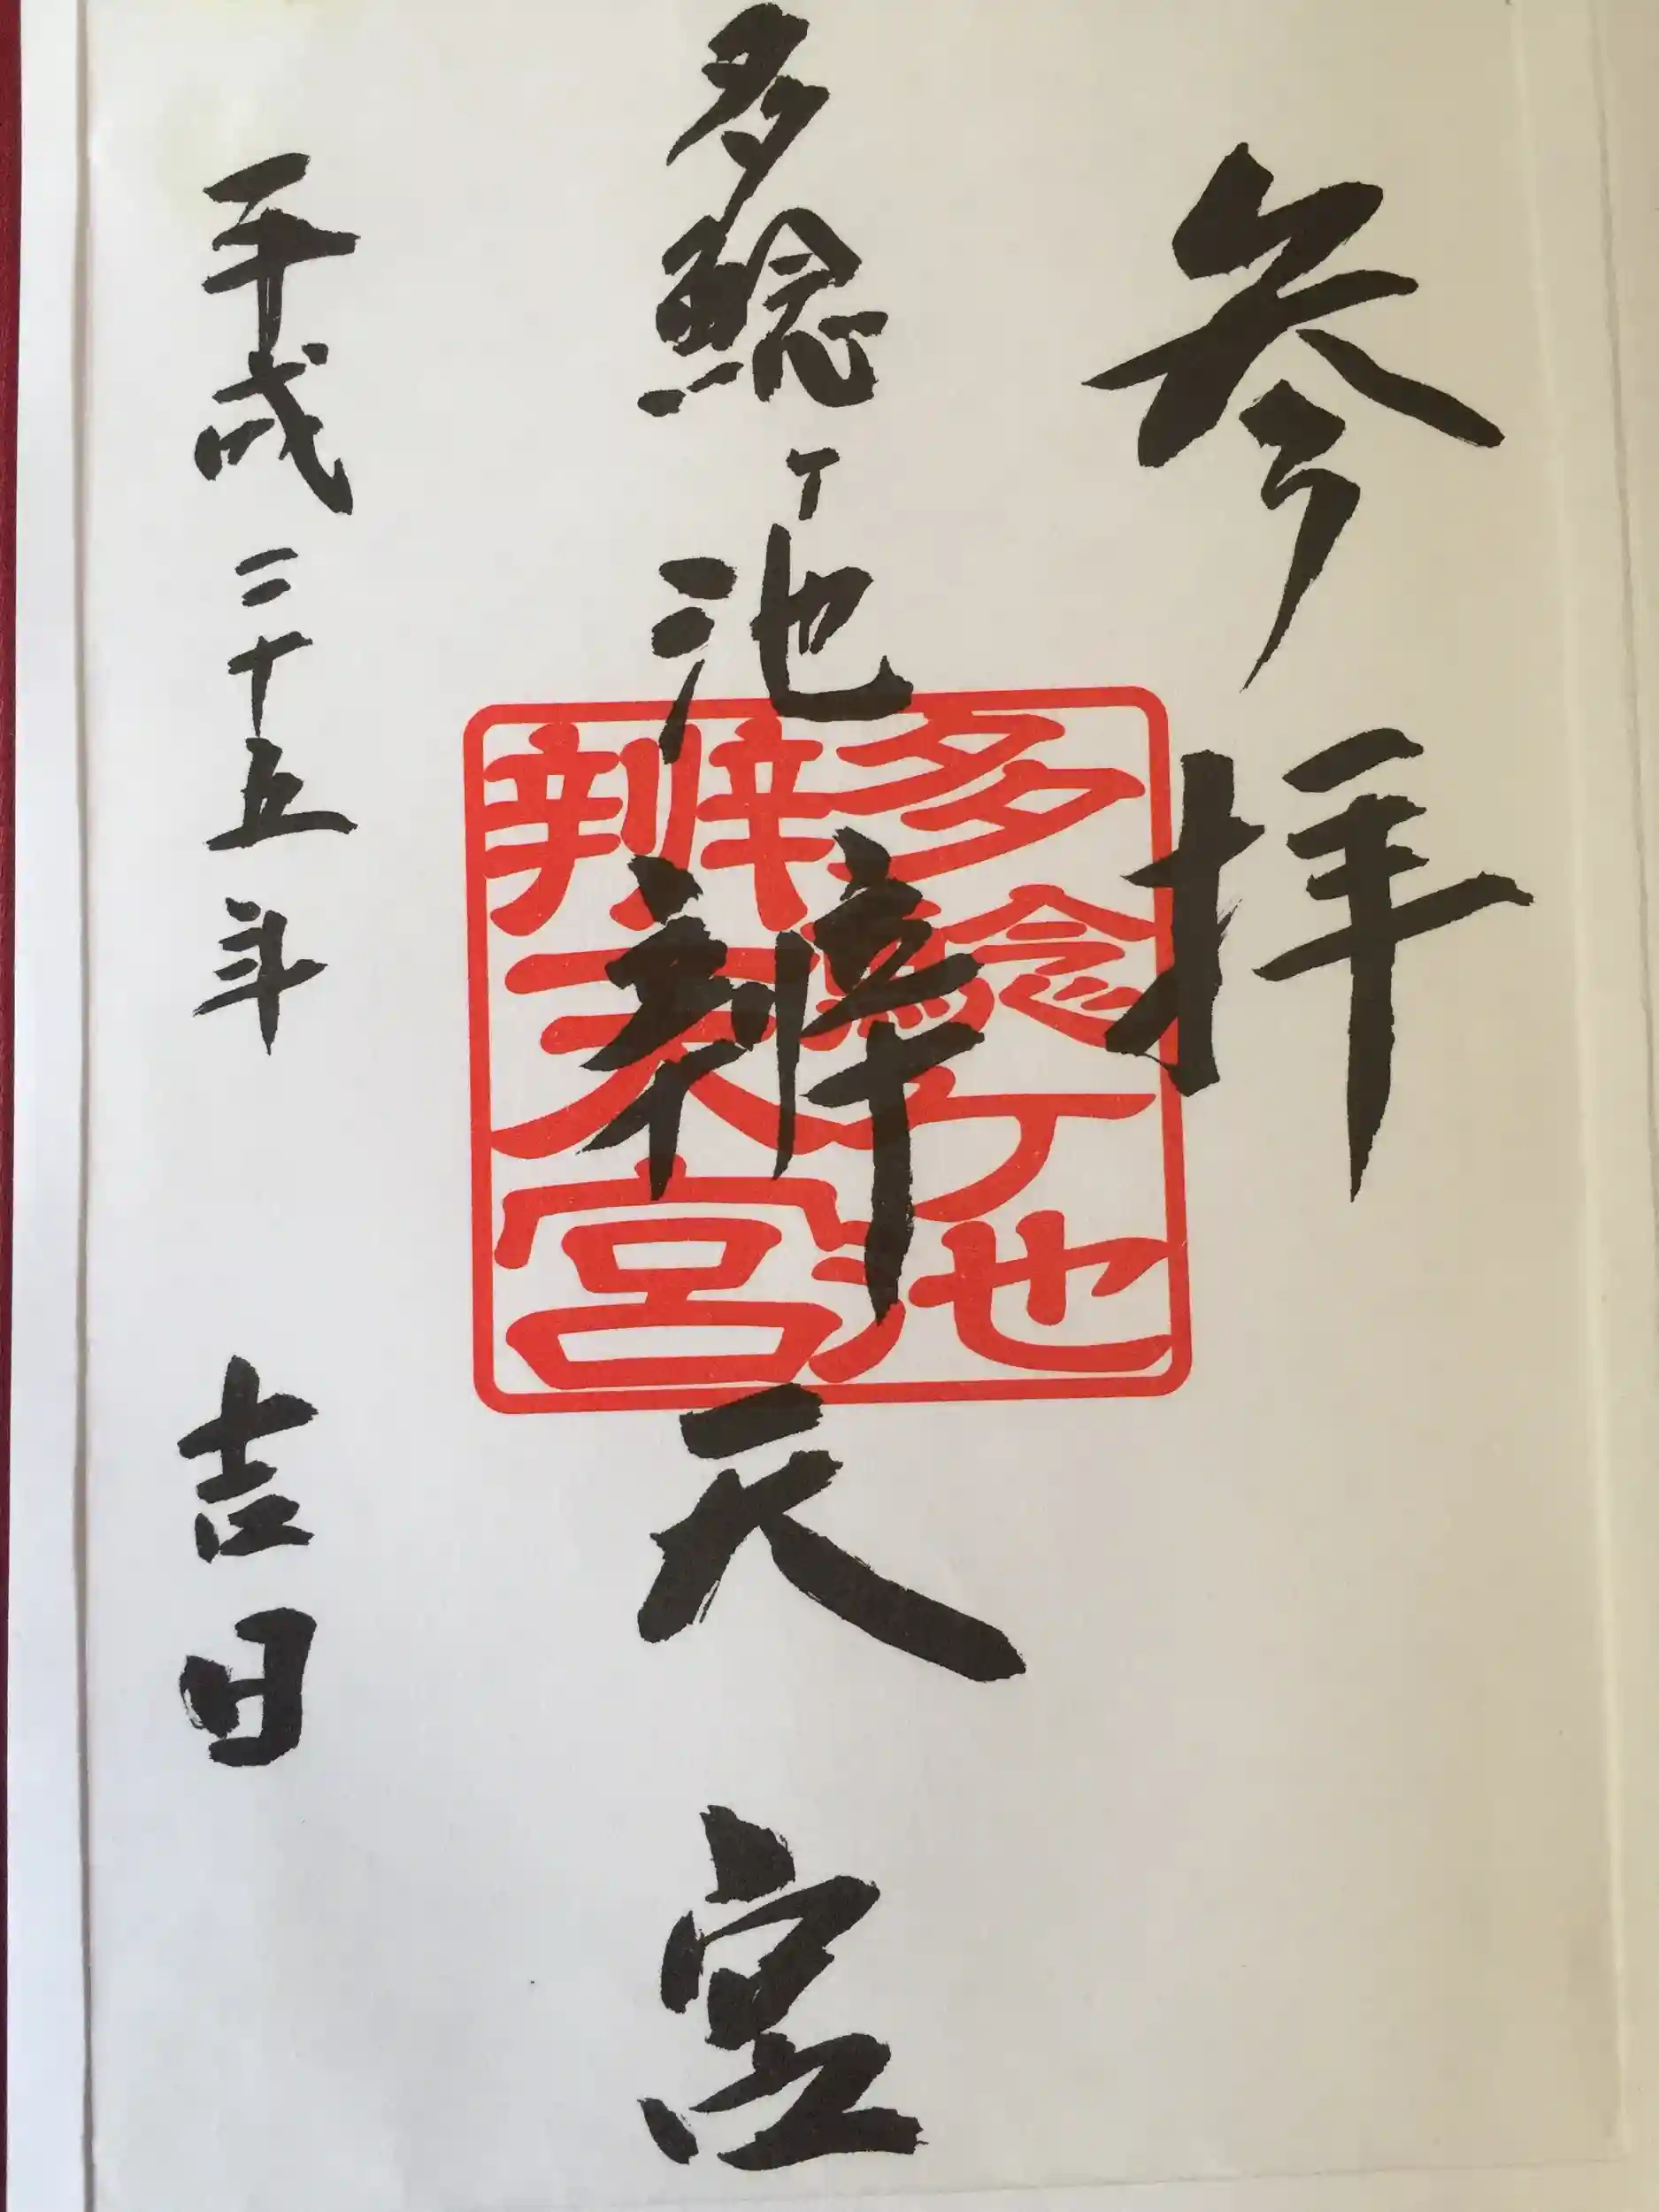 参拝
多鯰ヶ池辨天宮
多鯰ヶ池
辨天宮
平成二十五年 吉日